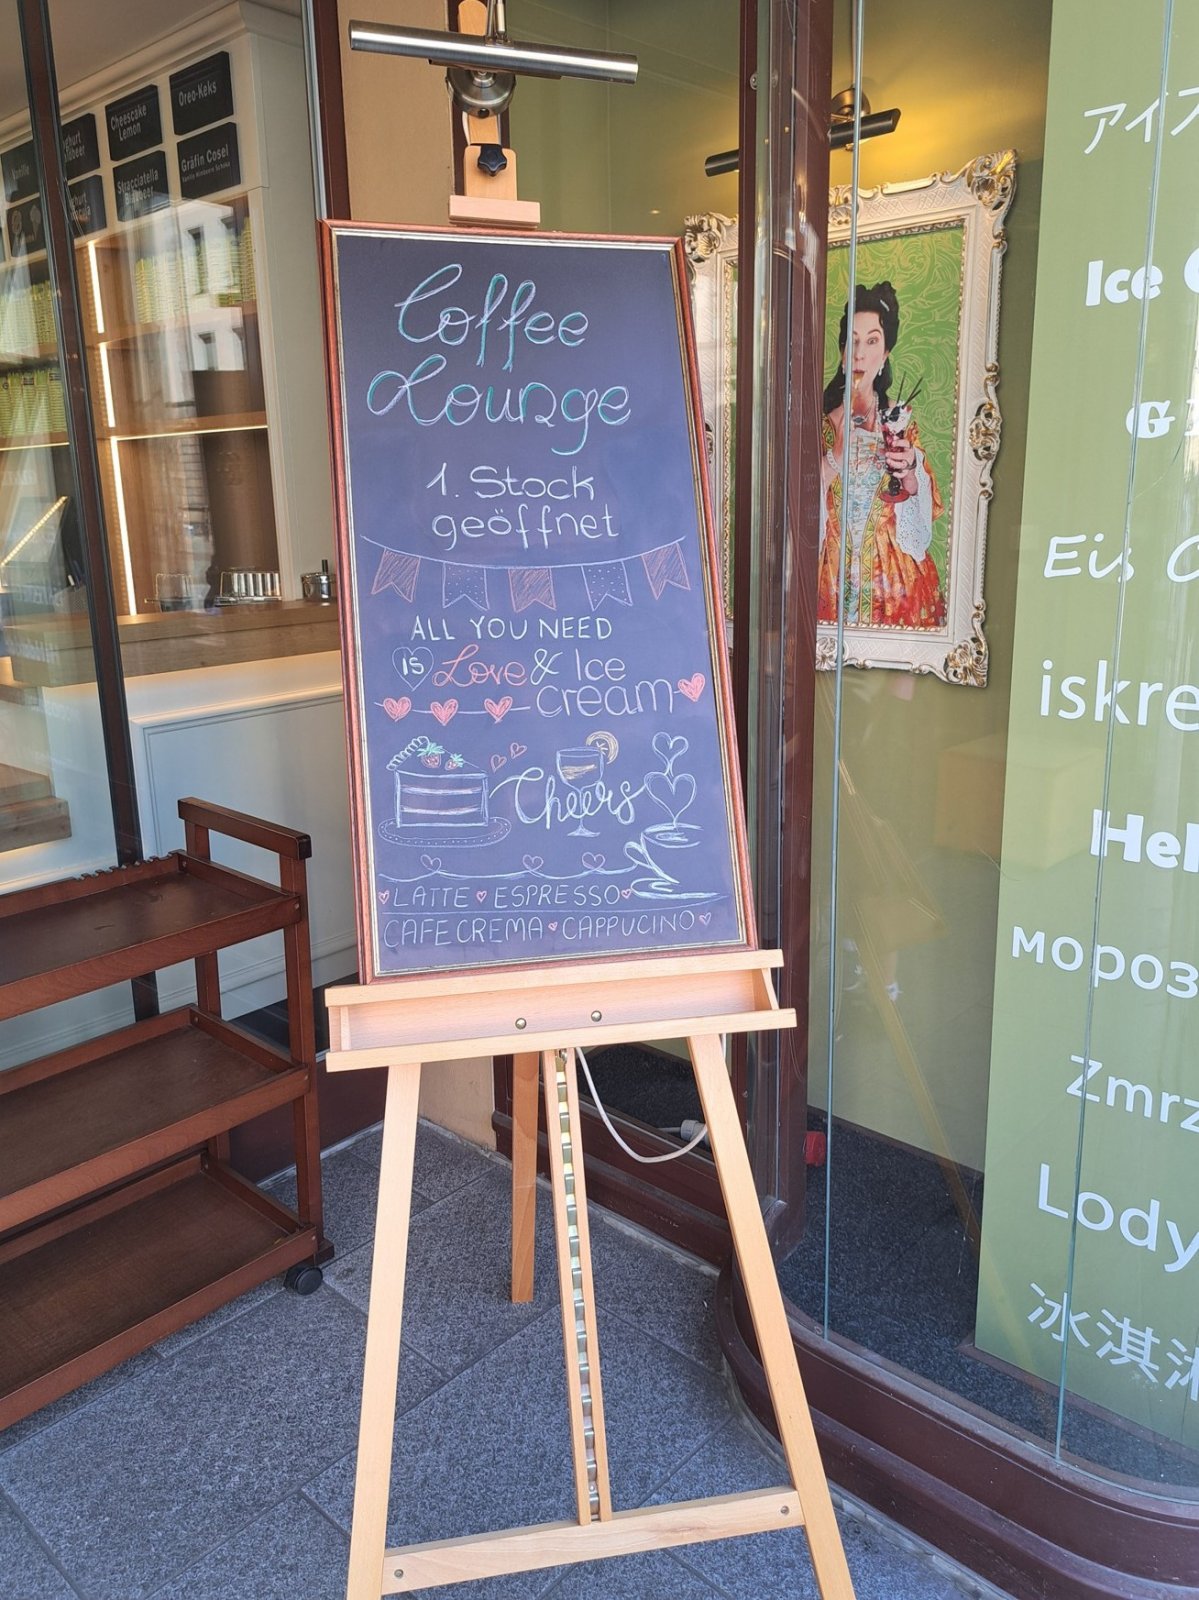 Oreo-Keks
Cheescake
Lemon
Gräfin Cosel
Stracciatella
Coffee
Lounge
1. Stock
geöffnet
ALL YOU NEED
IS Love & Ice
cream
Cheers
LATTE ESPRESSO
CAFE CREMA CAPPUCINO
アイ
Ice
G
Eis
iskre
Hel
мороз
Zmrz
Lody
冰淇淋